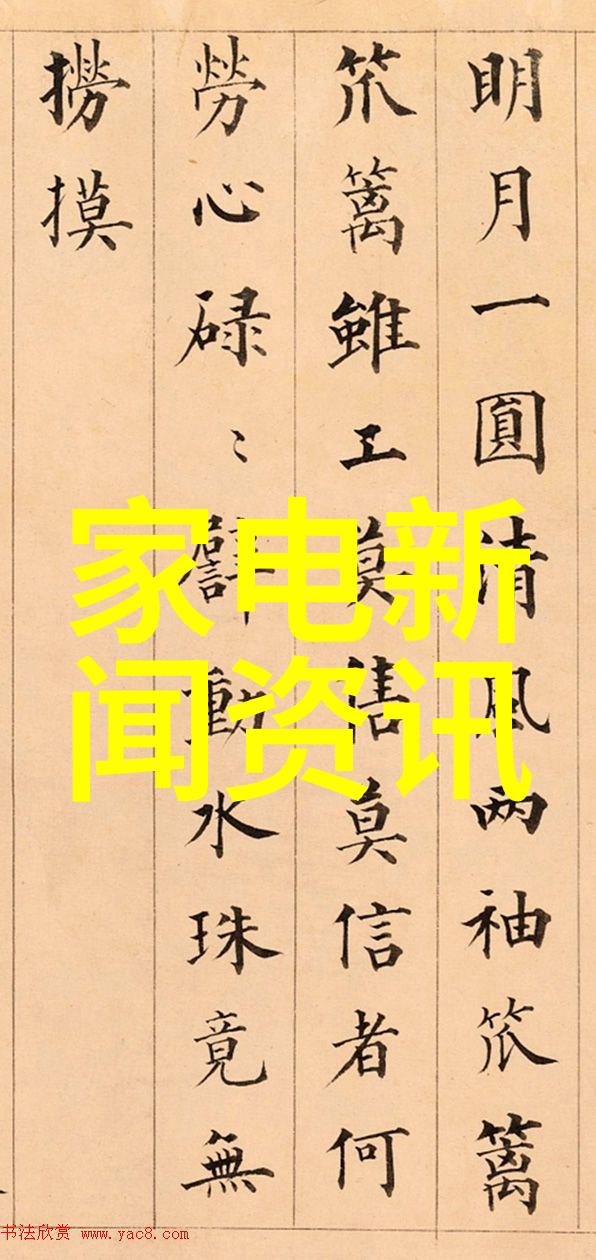 明月一圓清風两袖笊篱
笊篱雖工莫售莫信者何
勞心碌〻動水珠竟無
撈摸
家电新
闻资讯
书法欣赏 www.yac8.com